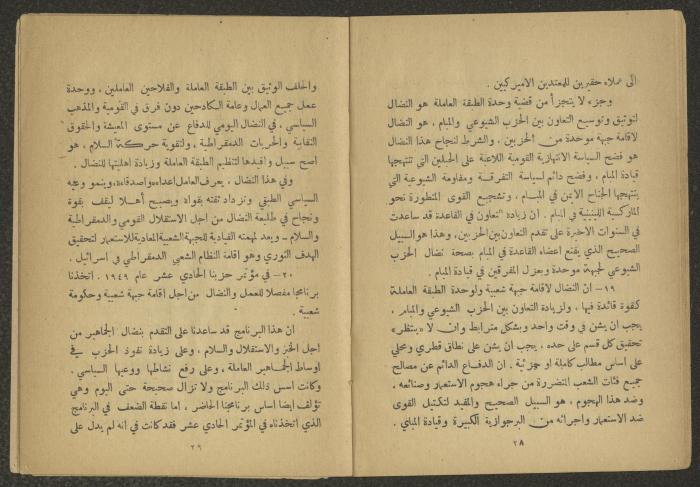 الى عملاء حقيرين للمعتدين الاميركيين .
وجزء لا يتجزأ من قضية وحدة الطبقة العاملة هو النضال
لتوثيق وتوسيع التعاون بين الحزب الشيوعي والمبام ، هو النضال
لاقامة جبهة موحدة من الحزبين ، والشرط لنجاح هذا النضال
هو فضح السياسة الانتهازية القومية اللاعبة على الحبلين التي تنتهجها
قيادة المبام ، وفضح دائم لسياسة التفرقة ومقاومة الشيوعية التي
ينتهجها الجناح الايمن في المبام ، وتشجيع القوى المتطورة نحو
الماركسية اللينينية في المبام . ان زيادة التعاون في القاعدة قد ساعدت
في السنوات الاخيرة على تقدم التعاون بين الحزبين ، وهذا هو السبيل
الصحيح الذي يقنع اعضاء القاعدة في المبام بصحة نضال الحزب
الشيوعي لجبهة موحدة وبعزل المفرقين في قيادة المبام .
١٩ – ان النضال لاقامة جبهة شعبية ولوحدة الطبقة العاملة
كقوة قائدة فيها ، ولزيادة التعاون بين الحزب الشيوعي والمبام ،
يجب ان يشن في وقت واحد وبشكل مترابط وان لا «ينتظر»
تحقيق كل قسم على حده . يجب ان يشن على نطاق قطري ومحلي
على اساس مطالب كاملة او جزئية . ان الدفاع الدائم عن مصالح
جميع فئات الشعب المتضررة من جراء هجوم الاستعمار وصنائعه ،
وضد هذا الهجوم ، هو السبيل الصحيح والمفيد لتكتيل القوى
ضد الاستعمار واجرائه من البرجوازية الكبيرة وقيادة المباي .
٢٨
والحلف الوثيق بين الطبقة العاملة والفلاحين العاملين ، ووحدة
عمل جميع العمال وعامة الكادحين دون فرق في القومية والمذهب
السياسي ، في النضال اليومي للدفاع عن مستوى المعيشة والحقوق
النقابية والحريات الدمقراطية ، ولتقوية حركة السلام ، هو
اصح سبيل وافيدها لتنظيم الطبقة العاملة وزيادة اهليتها للنضال .
وفي هذا النضال ، يعرف العامل اعداءه واصدقاءه ، وينمو وعيه
السياسي الطبقي وتزداد ثقته بقواه ويصبح أهلا ليقف بقوة
ونجاح في طليعة النضال من اجل الاستقلال القومي والدمقراطية
والسلام – ويعد لمهمته القيادية للجبهة الشعبية المعادية للاستعمار لتحقيق
الهدف الثوري وهو اقامة النظام الشعبي الدمقراطي في اسرائيل .
٢٠ – في مؤتمر حزبنا الحادي عشر عام ١٩٤٩ ، اتخذنا
برنامجا مفصلا للعمل والنضال من اجل اقامة جبهة شعبية وحكومة
شعبية .
ان هذا البرنامج قد ساعدنا على التقدم بنضال الجماهير من
اجل الخبز والاستقلال والسلام ، وعلى زيادة نفوذ الحزب في
اوساط الجماهير العاملة ، وعلى رفع نشاطها ووعيها السياسي .
وكانت اسس ذلك البرنامج ولا تزال صحيحة حتى اليوم وهي
تؤلف ايضا اساس برنامجنا الحاضر ، اما نقطة الضعف في البرنامج
الذي اتخذناه في المؤتمر الحادي عشر فقد كانت في انه لم يدل على
٢٩